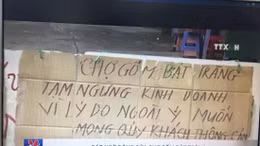 TTX
CHỢ GỐM BÁT TRÀNG
TẠM NGƯNG KINH DOANH
VÌ LÝ DO NGOÀI Ý MUỐN
MONG QUÝ KHÁCH THÔNG CẢM